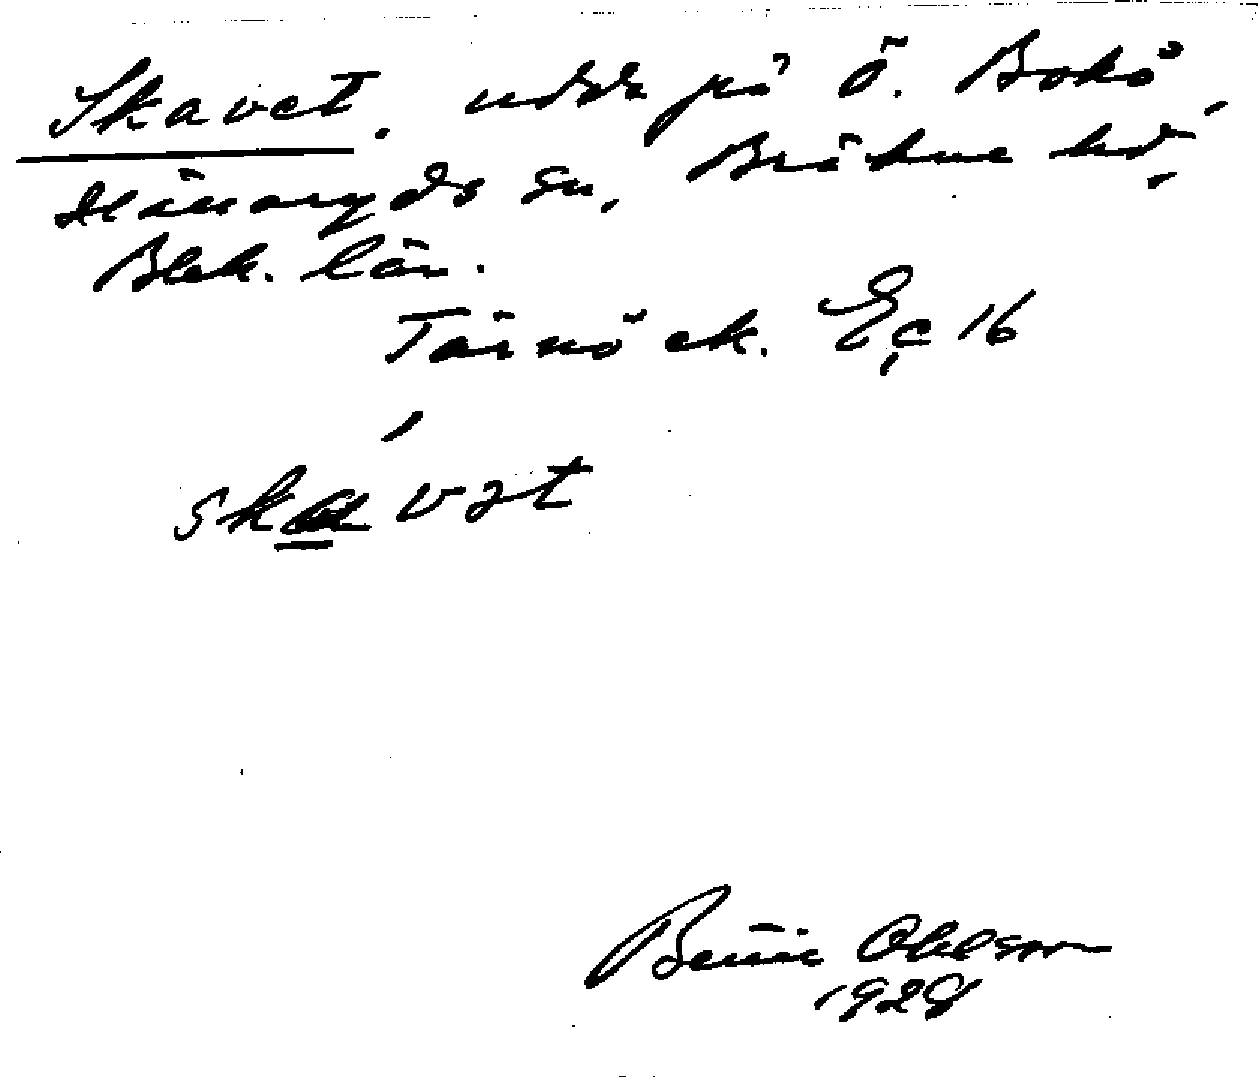 Skavet, udde på Ö. Bokö,
Hällaryds sn, Bräkne hd,
Blek. län.
Tärnö ek. Eç 16
skavət
Bertil Ohlsson
1928